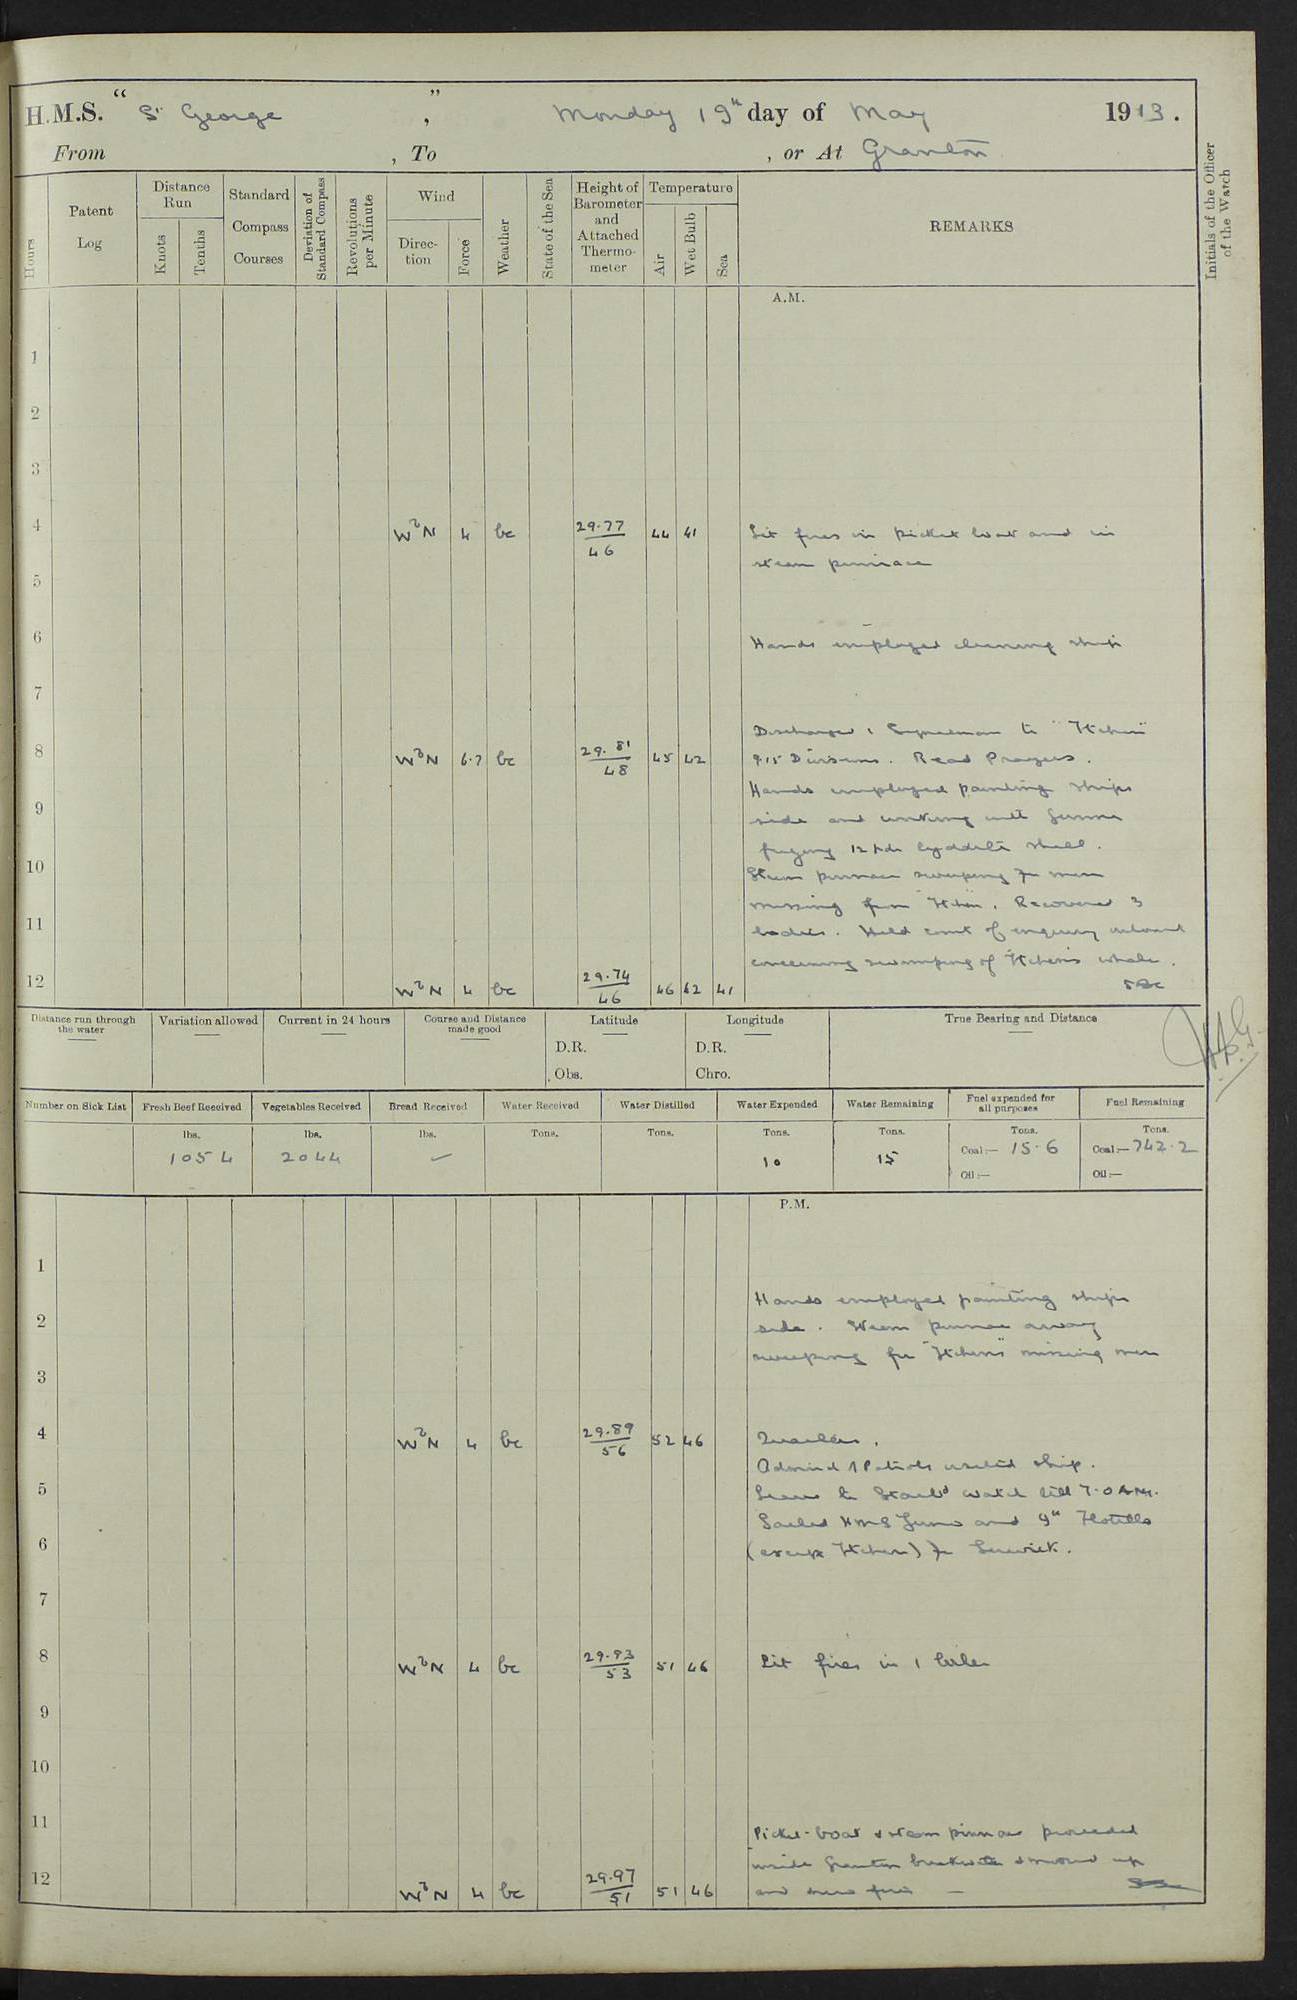 H.M.S. “ St George , ” Monday 19th day of May 1913.
From , To , or At Granton
Hours
Patent Log
Distance Run
Knots
Tenths
Standard Compass Courses
Deviation of Standard Compass
Revolutions per Minute
Wind
Direc-tion
Force
Weather
State of the Sea
Height of Barometer and Attached Thermo-meter
Temperature
Air
Wet Bulb
Sea
REMARKS
Initials of the Officer of the Watch
A.M.
1
2
3
4 WbN 4 bc 29.77 46 44 41 Lit fires in picket boat and in
steam pinnace
5
6 Hands employed cleaning ship
7
Discharged 1 Signalman to "Itchen"
8 WbN 6.7 bc 29.81 48 45 42 9.15 Divisions. Read Prayers.
Hands employed painting ships
9 side and working with Gunner
fuzing 12 pdr lyddite shell.
10 Steam pinnace sweeping for men
missing from Itchen. Recovered 3
11 bodies. Held court of enquiry onboard
concerning swamping of Itchen's whaler.
12 WbN 4 bc 29.74 46 46 42 41
Distance run through the water
Variation allowed
Current in 24 hours
Course and Distance made good
Latitude
D.R.
Obs.
Longitude
D.R.
Chro.
True Bearing and Distance
Number on Sick List
Fresh Beef Received lbs. 1054
Vegetables Received lbs. 2044
Bread Received lbs. –
Water Received Tons.
Water Distilled Tons.
Water Expended Tons. 10
Water Remaining Tons. 15
Fuel expended for all purposes Tons. Coal:— 15.6 Oil:—
Fuel Remaining Tons. Coal:— 742.2 Oil:—
P.M.
1
Hands employed painting ships
2 side. Steam pinnace away
sweeping for "Itchens" missing men
3
4 WbN 4 bc 29.89 56 52 46 Quarters.
Admiral of Patrols visited ship.
5 Leave to Starbd watch till 7.0 A.M.
Sailed HMS Juno and 9th Flotilla
6 (except Itchen) for Lerwick.
7
8 WbN 4 bc 29.93 53 51 46 Lit fires in 1 boiler
9
10
11
Picket-boat & steam pinnace proceeded
inside Granton breakwater & moored up
12 WbN 4 bc 29.97 51 51 46 and drew fires –